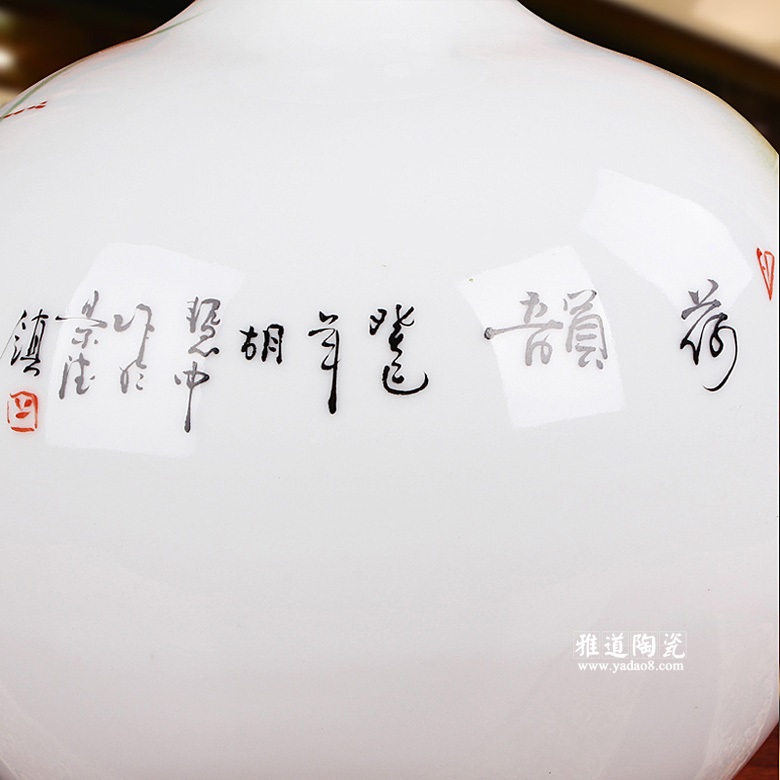 荷韻
癸巳年胡慧中作於景德鎮
雅道陶瓷
www.yadao8.com